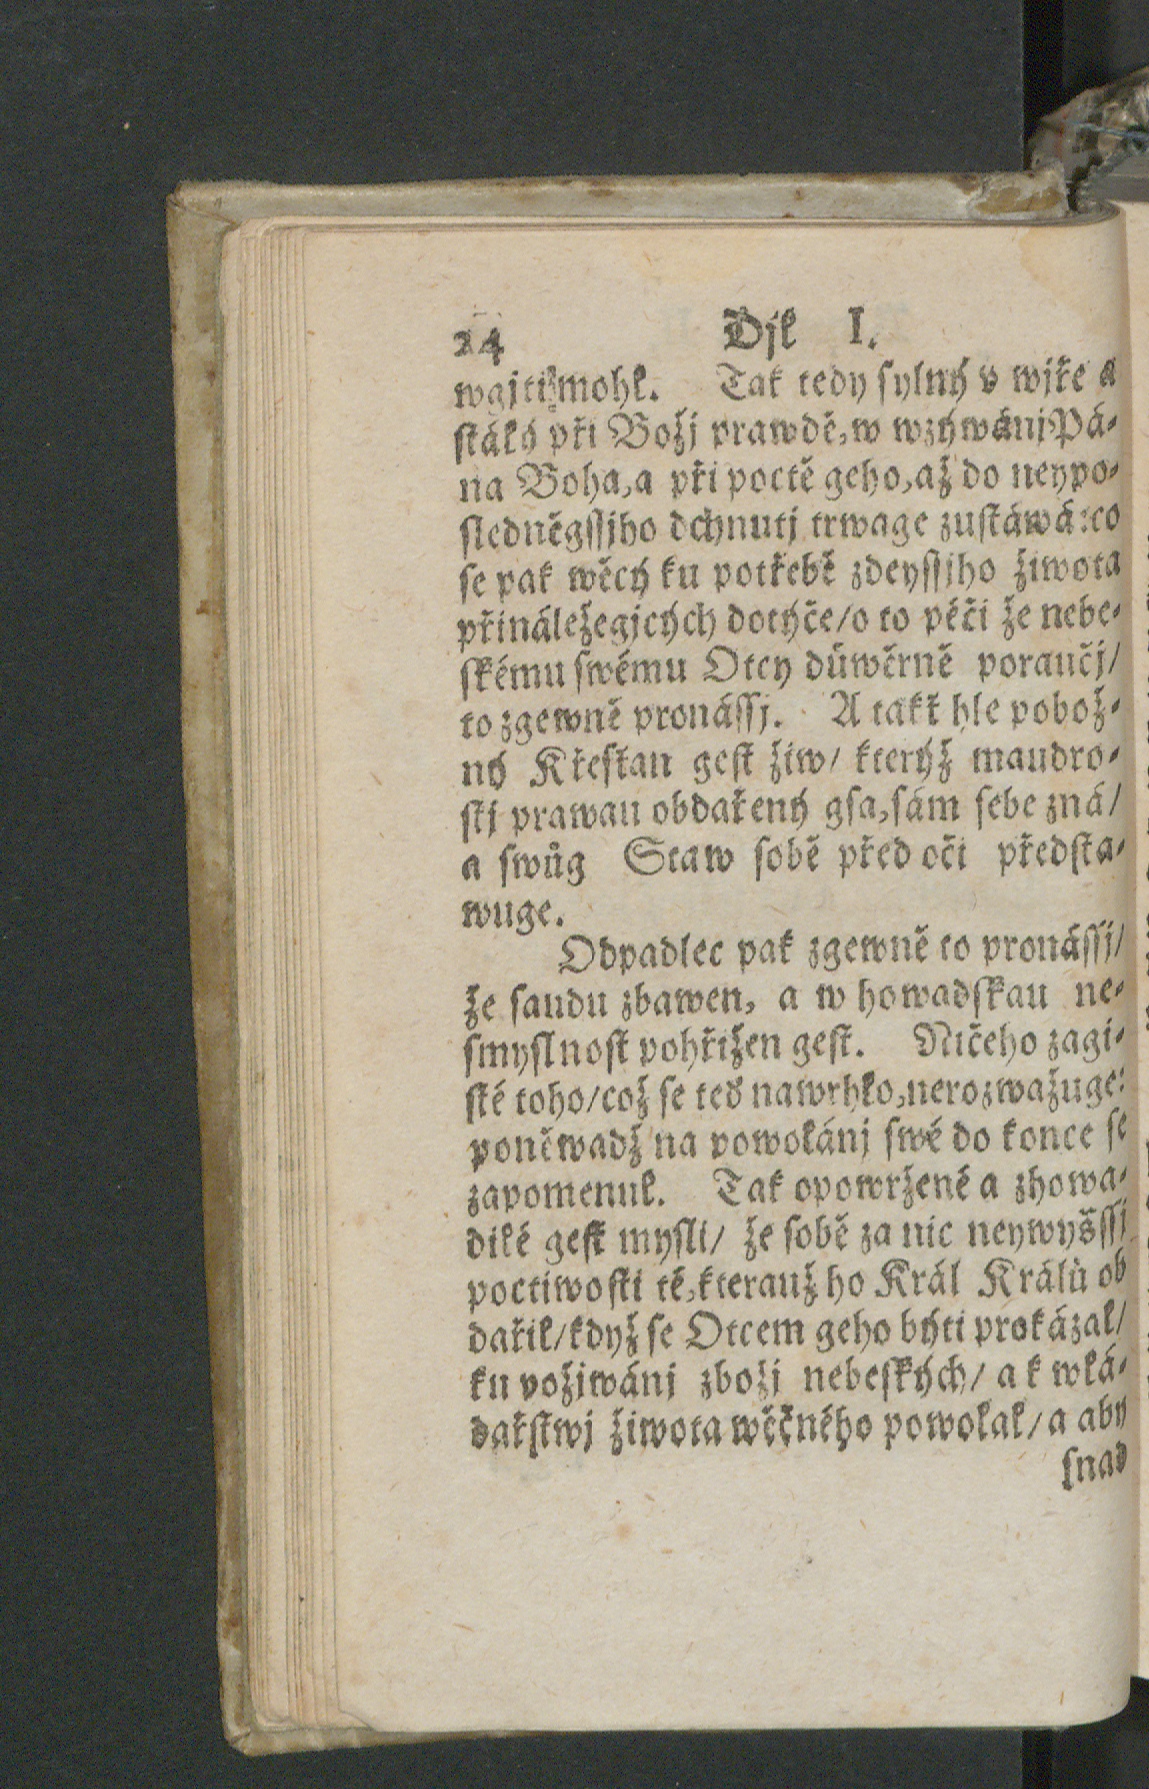 24 Djl I.
wgjti mohl. Tak tedy sylný v wjře a
stálý při Božj prawdě, w wzýwánj Pá-
na Boha, a při poctě geho, až do neypo-
sledněgssjho dchnutj trwage zustáwá: co
se pak wěcý ku potřebě zdeyssjho žiwota
přináležegjcých dotýče/ o to péči že nebe-
skému swému Otcy důwěrně poraučj/
to zgewně pronássj. A takť hle pobož-
ný Křesťan gest žiw/ kterýž maudro-
stj prawau obdařený gsa, sám sebe zná/
a swůg Staw sobě před oči předsta-
wuge.
Odpadlec pak zgewně to pronássj/
že saudu zbawen, a w howadskau ne-
smyslnost pohřižen gest. Ničeho zagi-
sté toho/ což se teď nawrhlo, nerozwažuge:
poněwadž na powolánj swé do konce se
zapomenul. Tak opowržené a zhowa-
dilé gest mysli/ že sobě za nic neywyšssj
poctiwosti té, kterauž ho Král Králů ob
dařil/ když se Otcem geho býti prokázal/
ku vožjwánj zbožj nebeských/ a k wlá-
dařstwj žiwota wěčného powolal/ a aby
snad